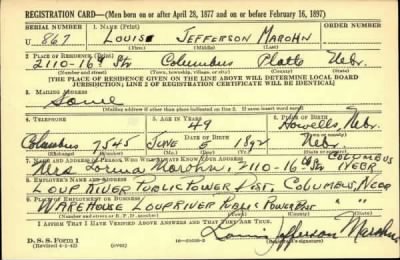 REGISTRATION CARD—(Men born on or after April 28, 1877 and on or before February 16, 1897)
SERIAL NUMBER 1. NAME (Print) ORDER NUMBER
U 867 LOUIS JEFFERSON MAROHN
(First) (Middle) (Last)
2. PLACE OF RESIDENCE (Print)
2110-16th St. Columbus Platte Nebr.
(Number and street) (Town, township, village, or city) (County) (State)
[THE PLACE OF RESIDENCE GIVEN ON THE LINE ABOVE WILL DETERMINE LOCAL BOARD
JURISDICTION; LINE 2 OF REGISTRATION CERTIFICATE WILL BE IDENTICAL]
3. MAILING ADDRESS
Same
(Mailing address if other than place indicated on line 2. If same insert word same)
4. TELEPHONE 5. AGE IN YEARS 6. PLACE OF BIRTH
49 Howells, Nebr.
DATE OF BIRTH (Town or county)
Columbus 7545 JUNE 5 1892 Nebr.
(Exchange) (Number) (Mo.) (Day) (Yr.) (State or country)
7. NAME AND ADDRESS OF PERSON WHO WILL ALWAYS KNOW YOUR ADDRESS
COLUMBUS
Mrs. Marohn, 2110-16th St. NEBR
8. EMPLOYER'S NAME AND ADDRESS
LOUP RIVER PUBLIC POWER DIST. COLUMBUS, NEBR
9. PLACE OF EMPLOYMENT OR BUSINESS
WAREHOUSE LOUP RIVER PUBLIC POWER DIST " "
(Number and street or R. F. D. number) (Town) (County) (State)
I AFFIRM THAT I HAVE VERIFIED ABOVE ANSWERS AND THAT THEY ARE TRUE.
Louis Jefferson Marohn
D. S. S. Form 1
(Revised 4-1-42) (over) (Registrant's signature)